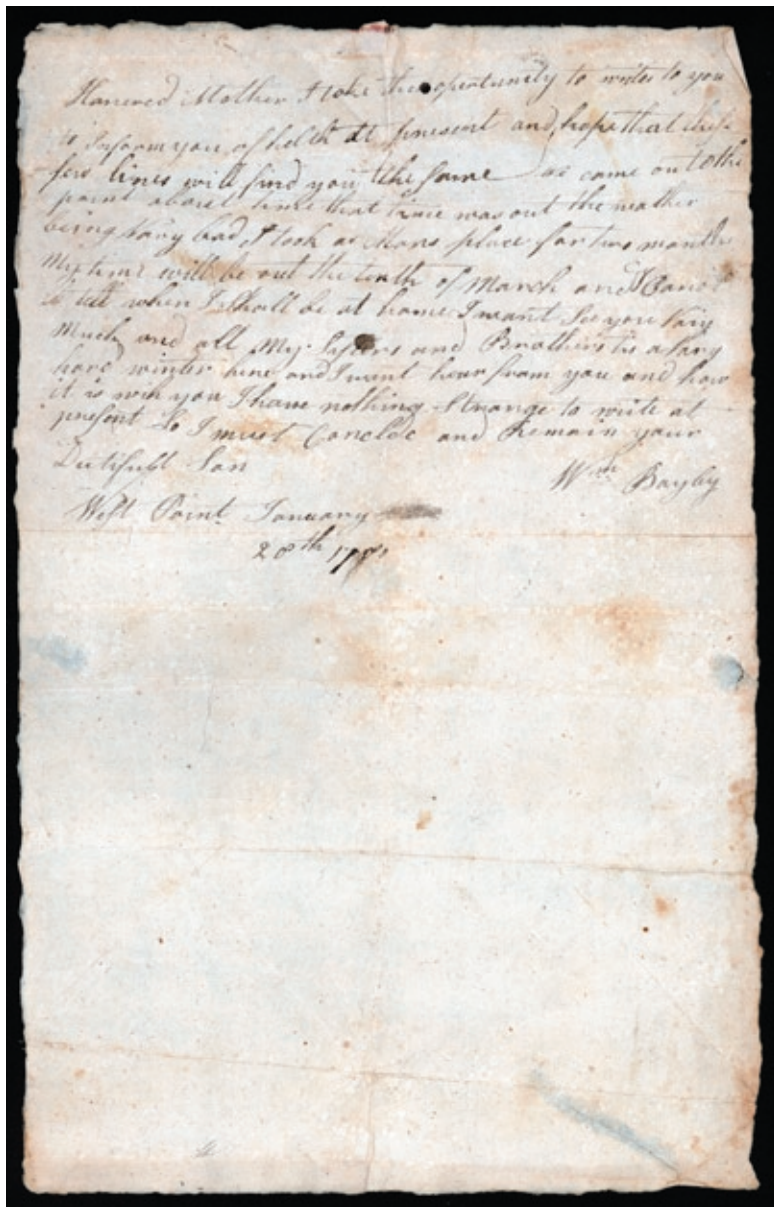 Honered Mother I take this opertunity to write to you
to Inform you of helth at present and hope that these
few lines will find you the same as came out to the
point about time that time was out the weather
being Vary bad I took a Mans place for two months
My time will be out the tenth of March and I Canot
tell when I shall be at home I want See you Vary
Much and all My Sisters and Brothers tis a Vary
hard winter here and I want hear from you and how
it is with you I have nothing Strange to write at
present So I must Conclde and Remain your
Dutifull Son
Wm Bayby
West Point January
28th